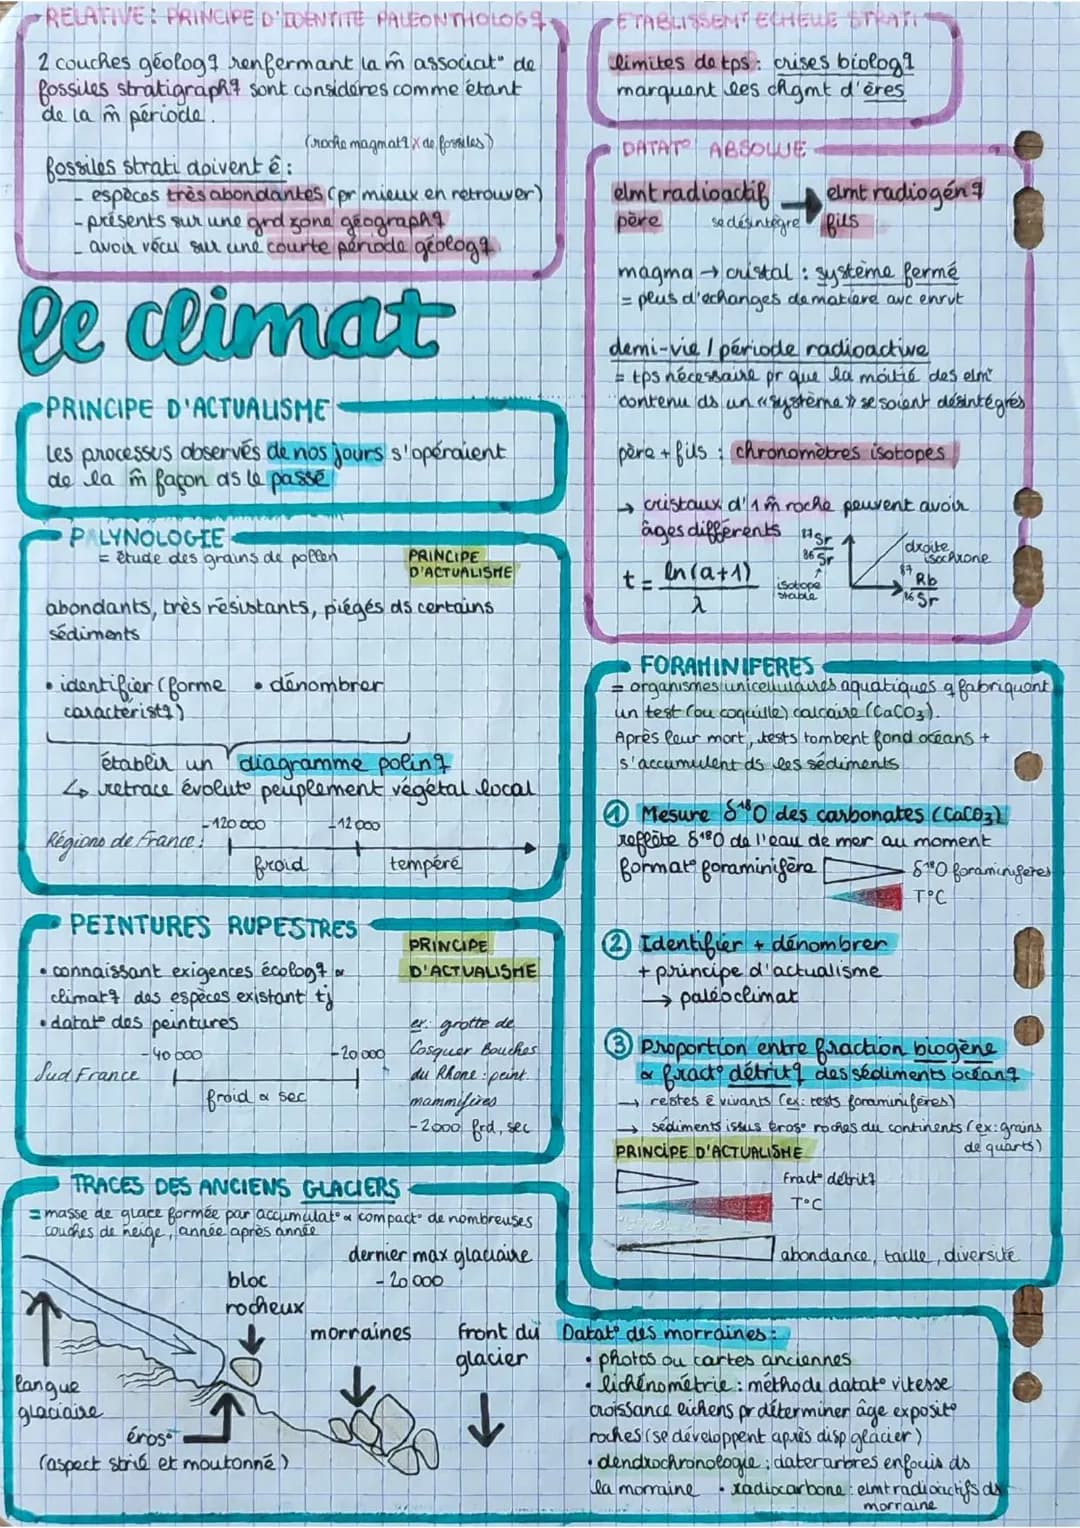 RELATIVE: PRINCIPE D'IDENTITÉ PALEONTHOLOGq
2 couches géologq renfermant la m̂ associat° de
fossiles stratigraphq sont considérés comme étant
de la m̂ période.
(roche magmatq X de fossiles)
fossiles strati doivent ê :
- espèces très abondantes (pr mieux en retrouver)
- présents sur une grd zone géographq
- avoir vécu sur une courte période géologq
ETABLISSEMT ECHELLE STRATI
limites de tps : crises biologq
marquant les chgmt d'ères
DATAT° ABSOLUE
elmt radioactif → elmt radiogénq
père se désintègre fils
magma → cristal : système fermé
= plus d'échanges de matière avc envrt
demi-vie / période radioactive
= tps nécessaire pr que la moitié des elmt
contenu ds un «système» se soient désintégrés
père + fils : chronomètres isotopes
→ cristaux d'1 m̂ roche peuvent avoir
âges différents
t = ln(a+1) / λ
87Sr
86Sr
isotope
stable
droite
isochrone
87Rb
86Sr
le climat
PRINCIPE D'ACTUALISME
Les processus observés de nos jours s'opéraient
de la m̂ façon ds le passé
PALYNOLOGIE
= étude des grains de pollen
PRINCIPE
D'ACTUALISME
abondants, très résistants, piégés ds certains
sédiments
• identifier (forme • dénombrer
caractéristq)
établir un diagramme polinq
↳ retrace évolut° peuplement végétal local
Régions de France : -120 000 -12 000
froid tempéré
PEINTURES RUPESTRES
PRINCIPE
D'ACTUALISME
• connaissant exigences écologq &
climatq des espèces existant tj
• datat° des peintures
-40 000 -20 000
Sud France
froid & sec
ex: grotte de
Cosquer Bouches
du Rhône : peint.
mammifères
-2000 frd, sec
TRACES DES ANCIENS GLACIERS
= masse de glace formée par accumulat° & compact° de nombreuses
couches de neige, année après année
dernier max glaciaire
- 20 000
bloc
rocheux
morraines
front du
glacier
langue
glaciaire
éros°
(aspect strié et moutonné)
FORAMINIFERES
= organismes unicellulaires aquatiques q fabriquent
un test (ou coquille) calcaire (CaCO3).
Après leur mort, tests tombent fond océans +
s'accumulent ds les sédiments
① Mesure δ18O des carbonates (CaCO3)
reflète δ18O de l'eau de mer au moment
format° foraminifère
δ18O foraminifères
T°C
② Identifier + dénombrer
+ principe d'actualisme
→ paléoclimat
③ Proportion entre fraction biogène
& fract° détritq des sédiments océanq
→ restes ê vivants (ex: tests foraminifères)
→ sédiments issus éros° roches du continents (ex: grains
de quarts)
PRINCIPE D'ACTUALISME
fract° détritq
T°C
abondance, taille, diversité
Datat° des morraines :
• photos ou cartes anciennes
• lichénométrie : méthode datat° vitesse
croissance lichens pr déterminer âge exposit°
roches (se développent après disp glacier)
• dendrochronologie : dater arbres enfouis ds
la morraine • radiocarbone : elmt radioactifs ds
morraine